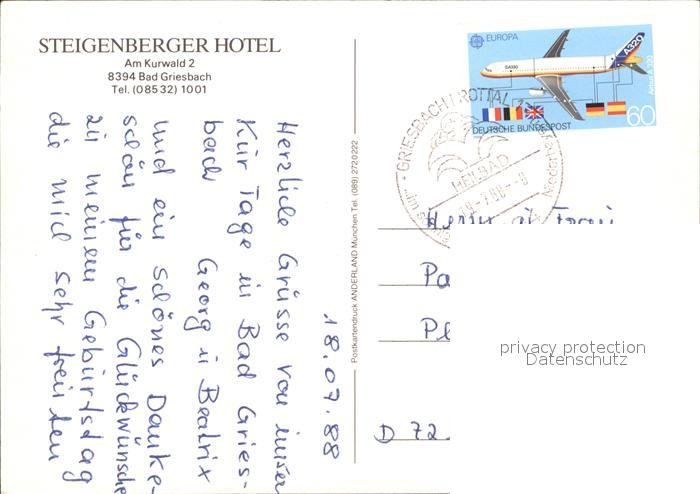 STEIGENBERGER HOTEL
Am Kurwald 2
8394 Bad Griesbach
Tel. (0 85 32) 10 01
18.07.88
Herzliche Grüsse von unser
Kur Tage in Bad Gries-
bach Georg u Beatrix
und ein schönes Danke-
schön für die Glückwünsche
zu meinem Geburtstag
die mich sehr freuten
Postkartendruck ANDERLAND München Tel. (089) 2720222
EUROPA
A320
Airbus A 320
DEUTSCHE BUNDESPOST
60
GRIESBACH I ROTTAL
HEILBAD
Herrn
Pa
Pl
D 72
privacy protection
Datenschutz